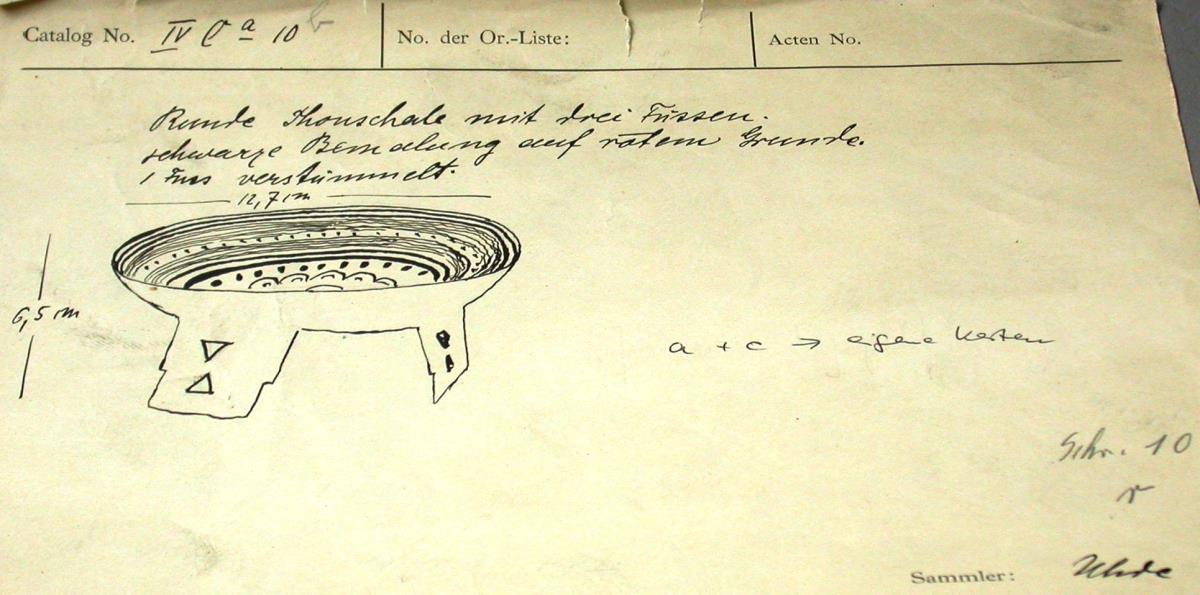 Catalog No. IV Ca 10 b
No. der Or.-Liste:
Acten No.
Runde Thonschale mit drei Füssen.
schwarze Bemalung auf rotem Grunde.
1 Fuss verstümmelt.
12,7 cm
6,5 cm
a + c → eigene Karten
Schr. 10
r
Sammler: Uhde